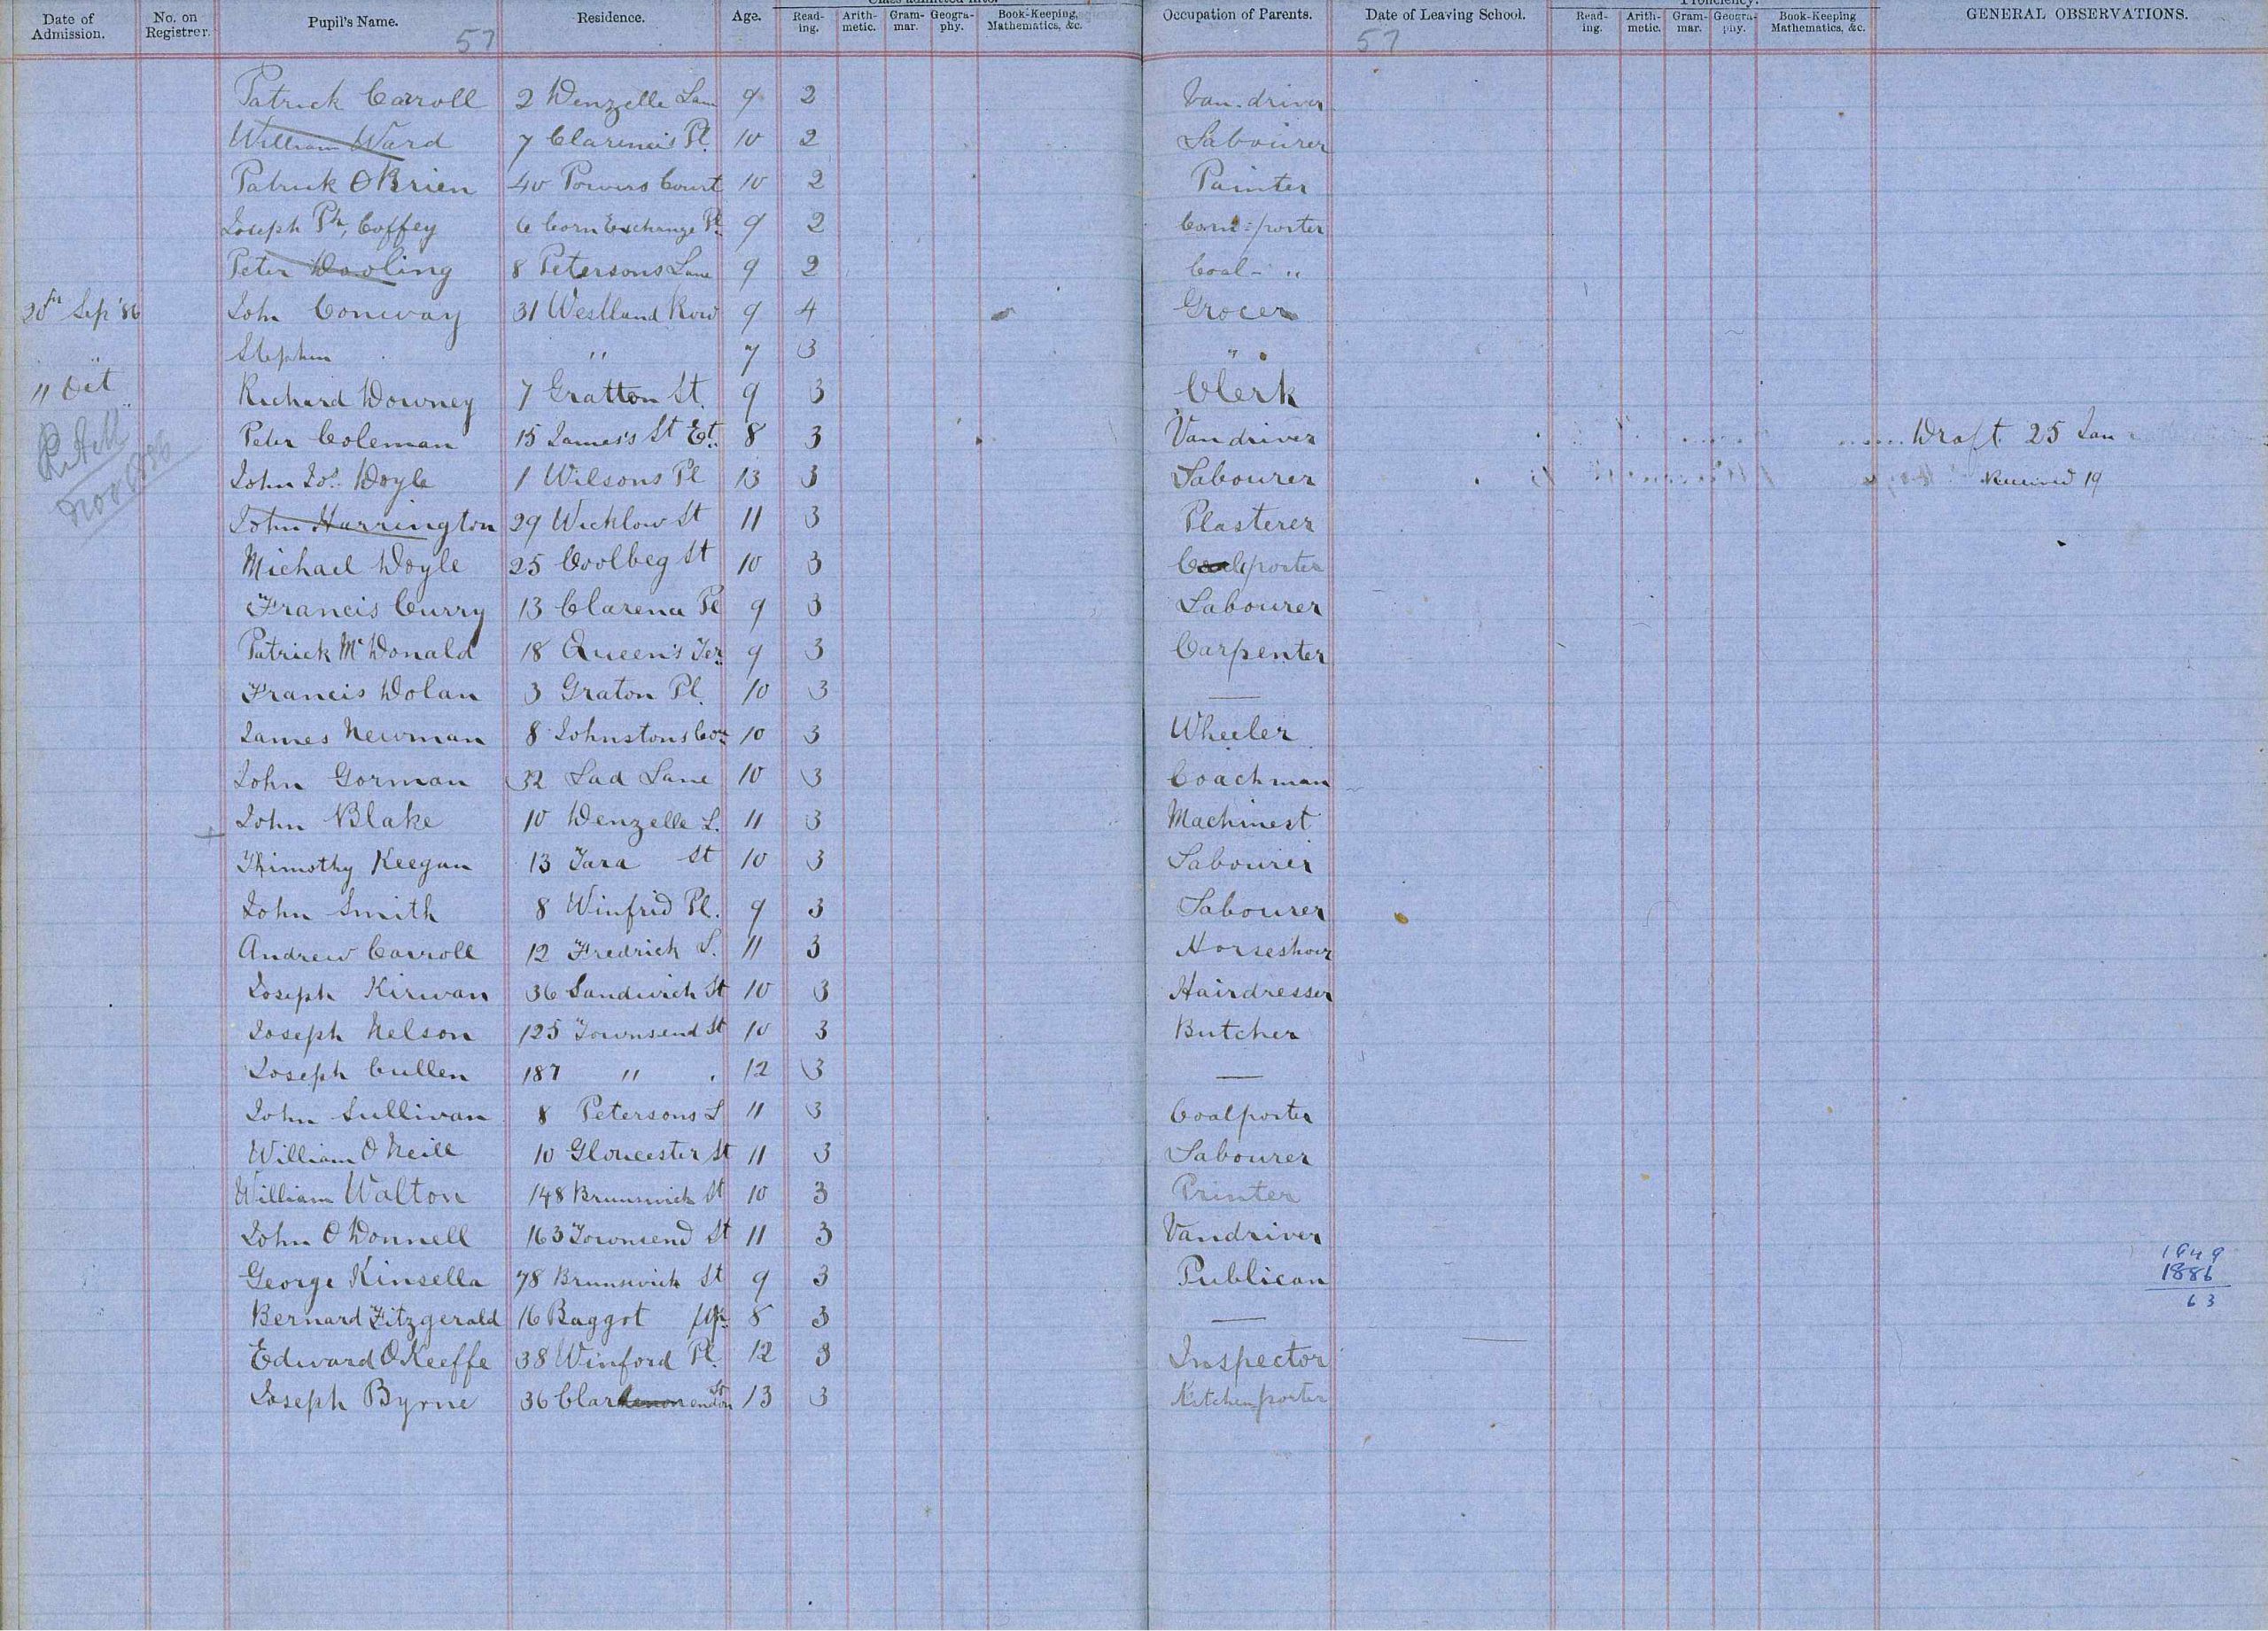 Date of Admission. No. on Registrer. Pupil's Name. Residence. Age. Class admitted into. Read-ing. Arith-metic. Gram-mar. Geogra-phy. Book-Keeping, Mathematics, &c. Occupation of Parents. Date of Leaving School. Proficiency. Read-ing. Arith-metic. Gram-mar. Geogra-phy. Book-Keeping Mathematics, &c. GENERAL OBSERVATIONS.
57 57
Patrick Carroll 2 Denzelle Lane 9 2 Van-driver
William Ward 7 Clarence's Pl. 10 2 Labourer
Patrick O'Brien 40 Powers Court 10 2 Painter
Joseph Ph. Coffey 6 Corn Exchange Pl. 9 2 Corn=porter
Peter Dowling 8 Petersons Lane 9 2 Coal- "
20th Sep '86 John Conway 31 Westland Row 9 4 Grocer
Stephen " 7 3 "
11 Oct Richard Downey 7 Gratton St. 9 3 Clerk
Peter Coleman 15 James's St Et. 8 3 Van driver Draft 25 Jan
John Jos. Doyle 1 Wilsons Pl 13 3 Labourer Received 19
Nov 1886
John Harrington 29 Wicklow St 11 3 Plasterer
Michael Doyle 25 Coolbeg St 10 3 Coalporter
Francis Curry 13 Clarence Pl 9 3 Labourer
Patrick McDonald 18 Queen's Ter. 9 3 Carpenter
Francis Dolan 3 Graton Pl. 10 3 —
James Newman 8 Johnstons Cou. 10 3 Wheeler
John Gorman 32 Lad Lane 10 3 Coachman
+ John Blake 10 Denzelle L. 11 3 Machinest
Thimothy Keegan 13 Tara St 10 3 Labourer
John Smith 8 Winfrid Pl. 9 3 Labourer
Andrew Carroll 12 Fredrick L. 11 3 Horseshoer
Joseph Kirwan 36 Sandwich St 10 3 Hairdresser
Joseph Nelson 125 Townsend St 10 3 Butcher
Joseph Cullen 187 " 12 3 —
John Sullivan 8 Petersons L 11 3 Coalporter
William O'Neill 10 Gloucester St 11 3 Labourer
William Walton 148 Brunswick St 10 3 Printer
John O'Donnell 163 Townsend St 11 3 Vandriver
1949
George Kinsella 78 Brunswick St 9 3 Publican 1886
Bernard Fitzgerald 16 Baggot 8 3 — 63
Edward O'Keeffe 38 Winford Pl. 12 3 Inspector
Joseph Byrne 36 Clarendon St 13 3 Kitchen porter